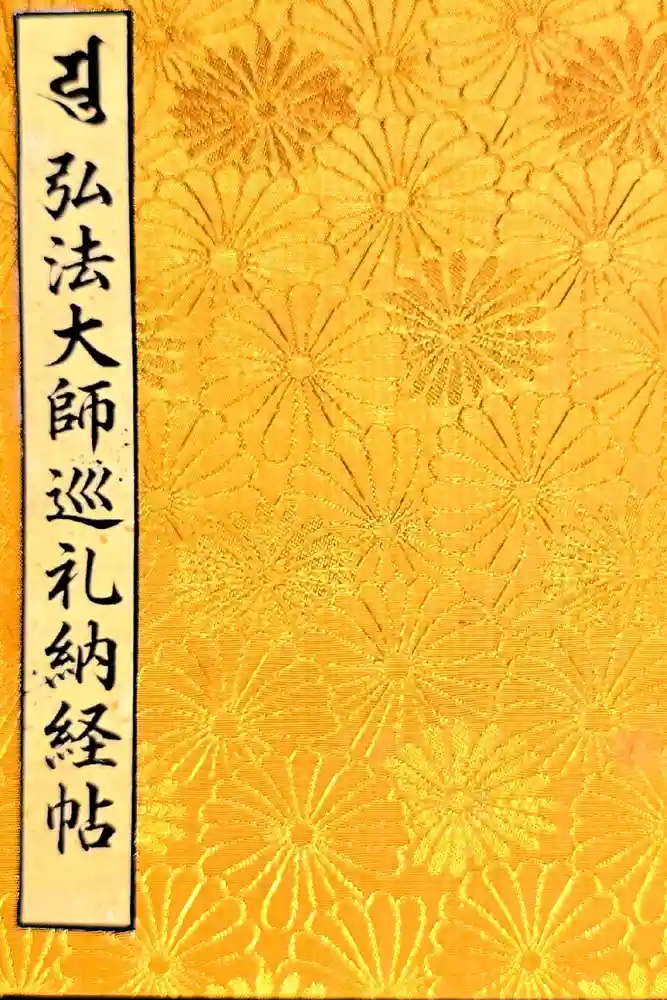 弘法大師巡礼納経帖